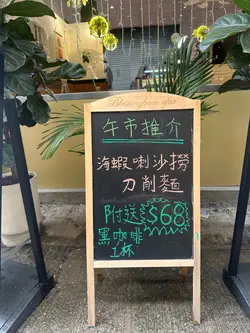 午市推介
海蝦喇沙撈
刀削麵
附送 $68
黑咖啡
1杯